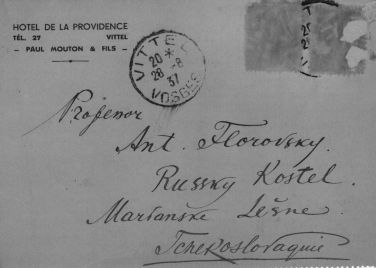 HOTEL DE LA PROVIDENCE
TÉL. 27 VITTEL
– PAUL MOUTON & FILS –
VITTEL
20 *
28 -8
37
VOSGES
25
37
Profenor
Ant. Florovsky.
Russky Kostel.
Marianské Lešne.
Tchekoslovaquie